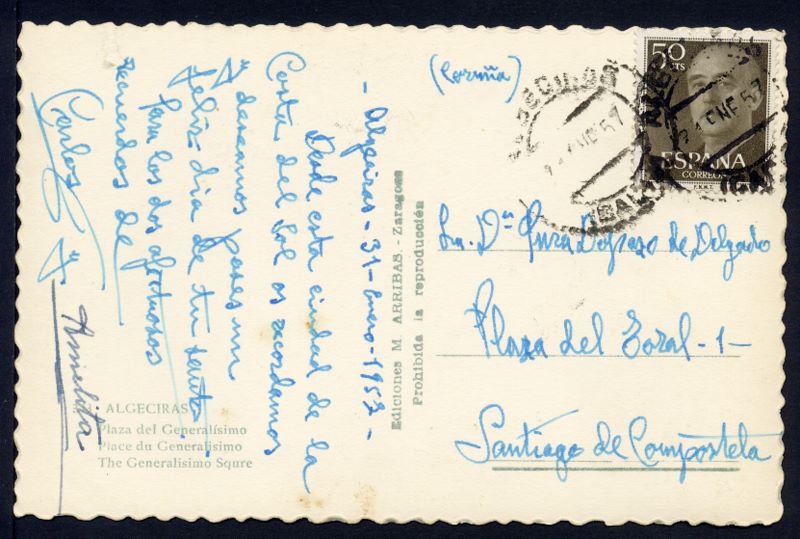 - Algeciras - 31 - Enero - 1957 -
Desde esta ciudad de la
Costa del Sol os recordamos
y deseamos pases un
feliz día de tu santo.
para los dos afectuosos
recuerdos de
Carlos y
Amelita
Ediciones M. ARRIBAS. - Zaragoza
Prohibida la reproducción
ALGECIRAS
Plaza del Generalísimo
Place du Generalisimo
The Generalisimo Squre
(Coruña)
50 CTS
ESPAÑA
CORREOS
F.N.M.T.
ENE 57
Sra. Dª Pura Dopazo de Delgado
Plaza del Toral - 1 -
Santiago de Compostela